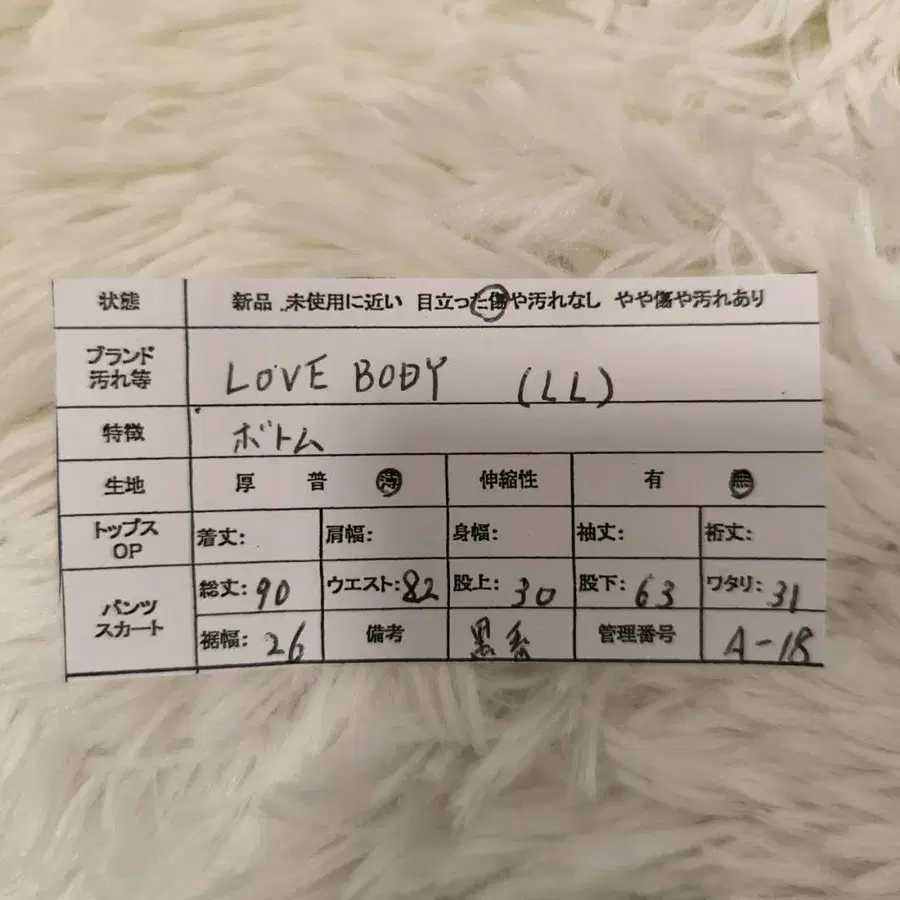 状態 新品 未使用に近い 目立った傷や汚れなし やや傷や汚れあり
ブランド
汚れ等 LOVE BODY (LL)
特徴 ボトム
生地 厚 普 薄 伸縮性 有 無
トップス
OP 着丈: 肩幅: 身幅: 袖丈: 裄丈:
パンツ
スカート 総丈: 90 ウエスト: 82 股上: 30 股下: 63 ワタリ: 31
裾幅: 26 備考 黒系 管理番号 A-18